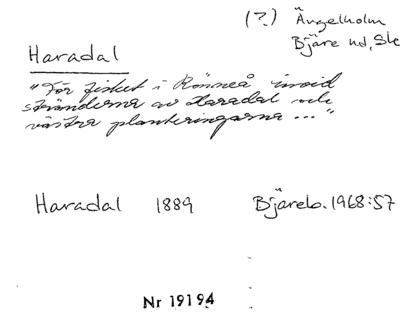 (?) Ängelholm
Bjäre hd, Sk
Haradal
"För fisket i Rönneå invid
stränderna av Haradal och
västra planteringarna ..."
Haradal 1889 Bjäreb. 1968:57
Nr 19194